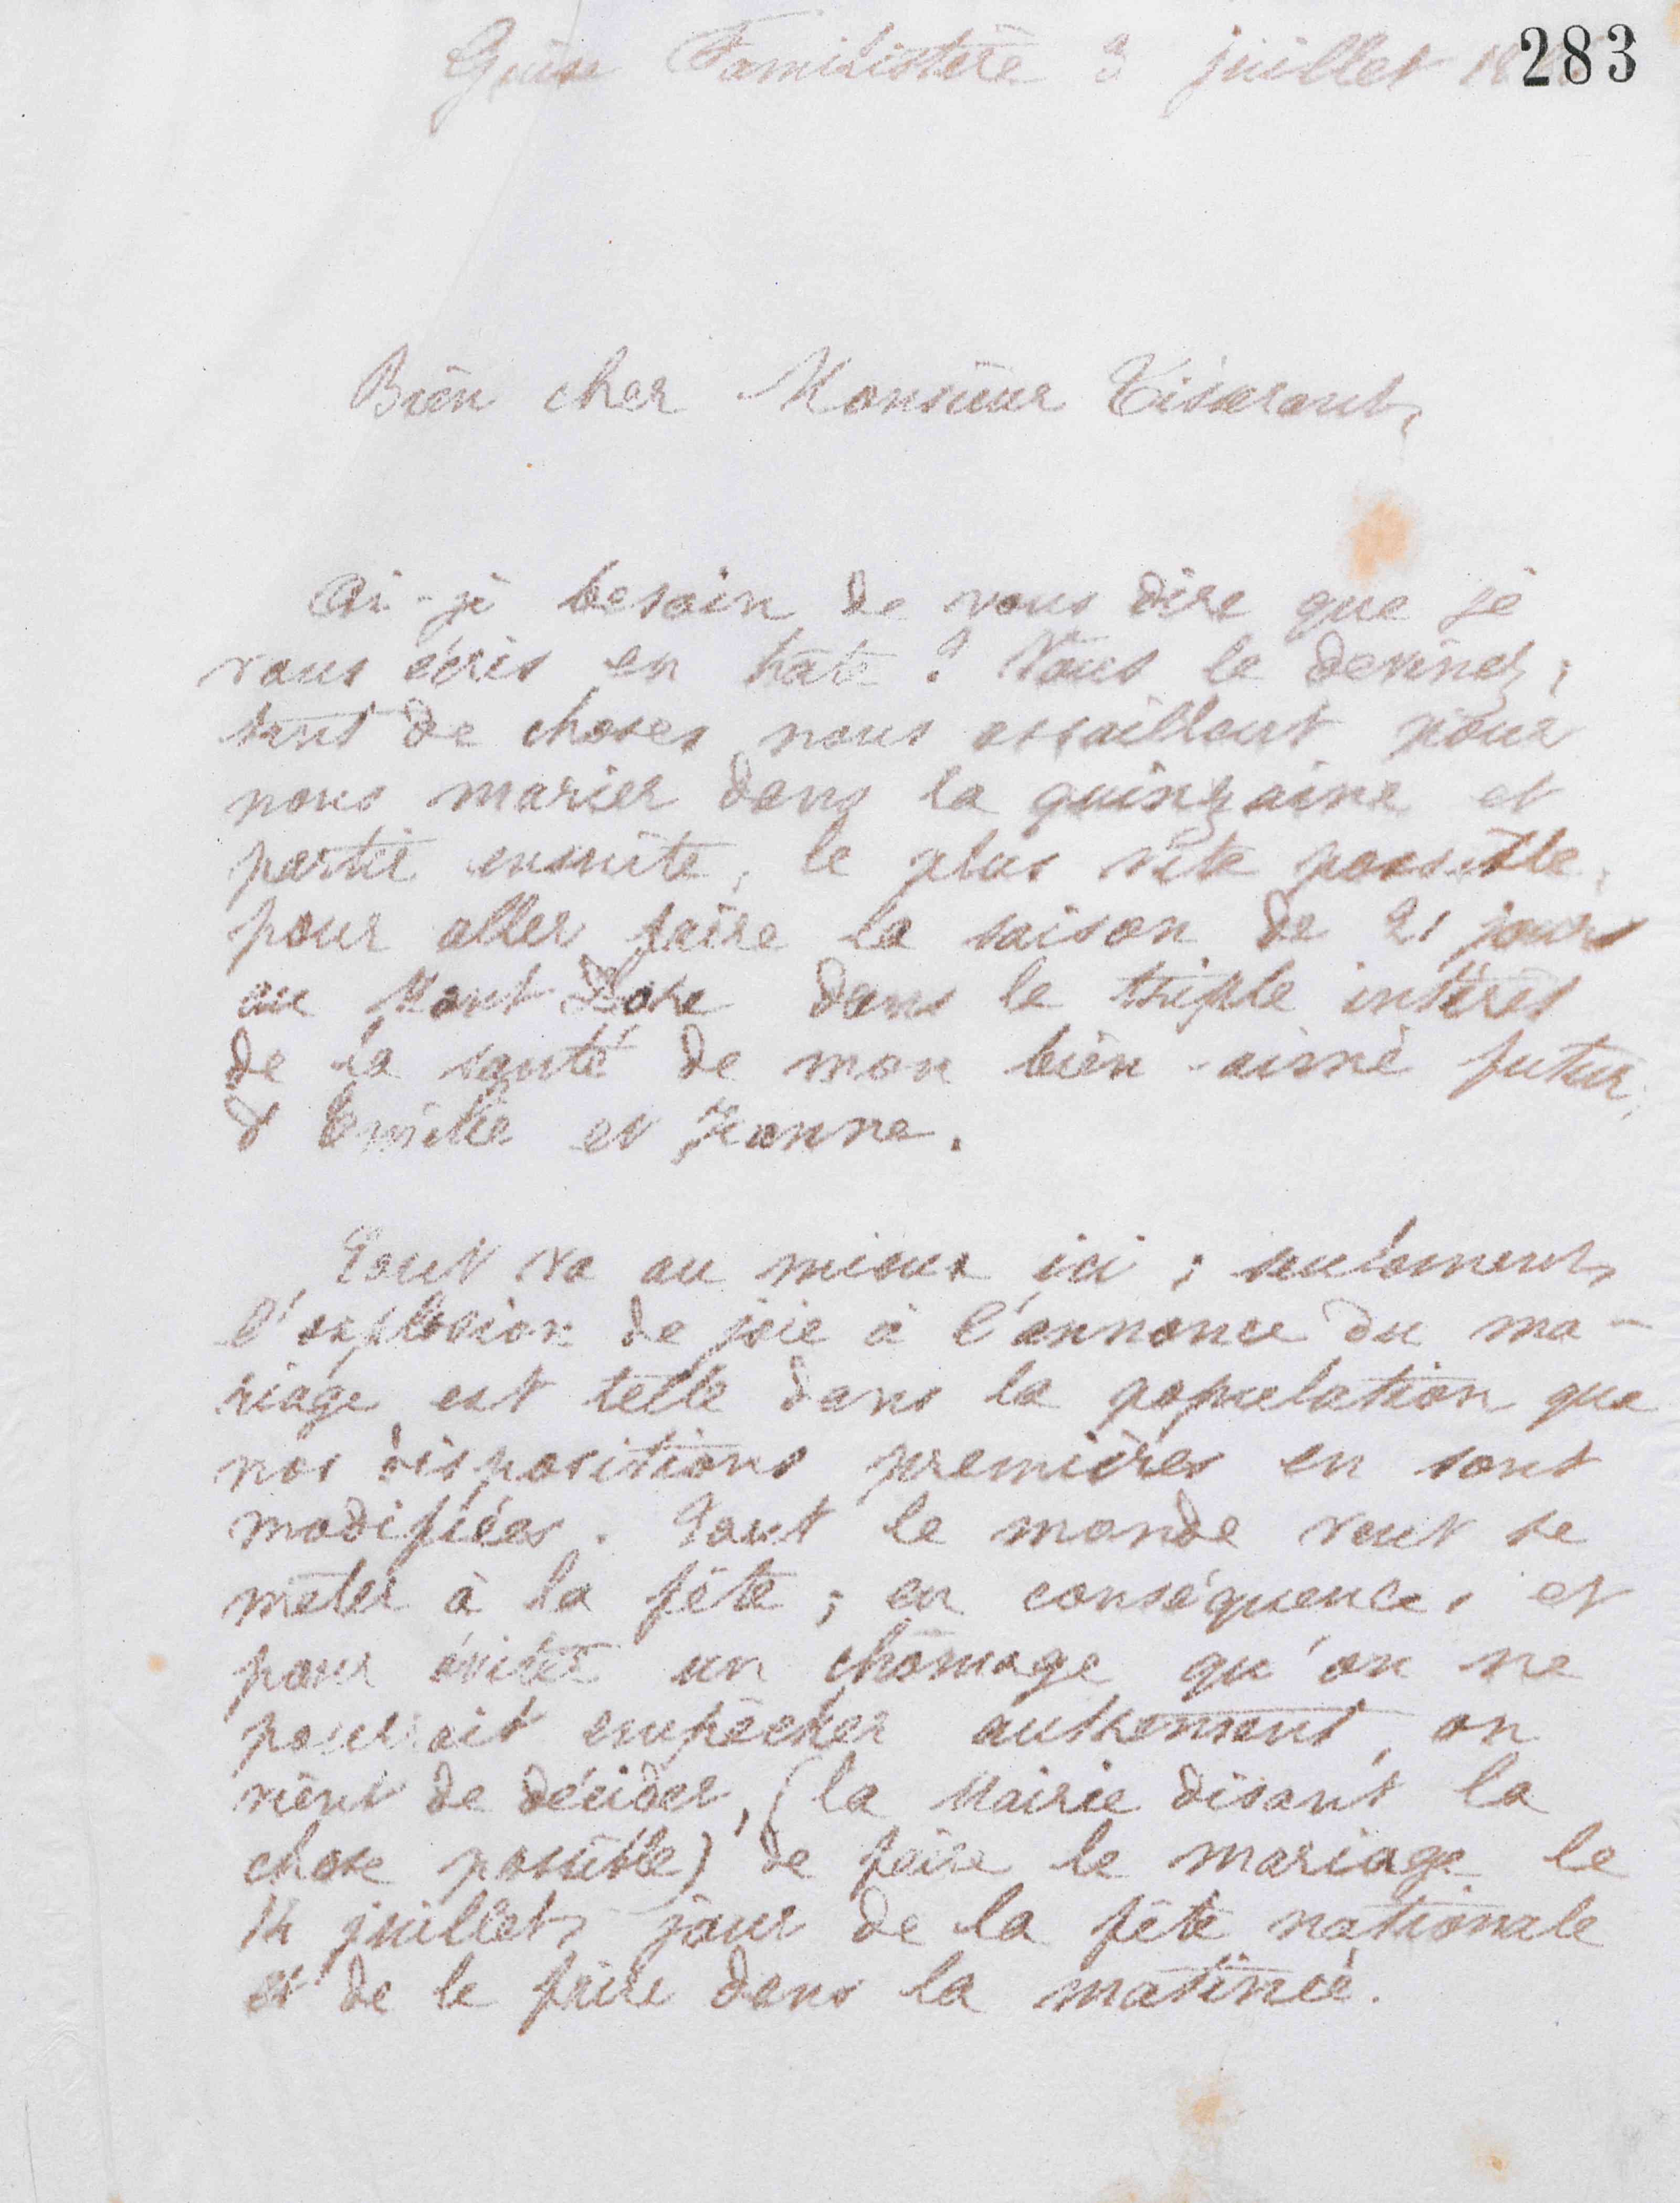 283
Guise Familistère 3 juillet
Bien cher Monsieur Tisserant,
Ai-je besoin de vous dire que je
vous écris en hâte ? Vous le devinez ;
tant de choses nous assaillent pour
nous marier dans la quinzaine et
partir ensuite, le plus vite possible,
pour aller faire la saison de 21 jours
au Mont Dore dans le triple intérêt
de la santé de mon bien-aimé futur,
d'Emilie et Jeanne.
Tout va au mieux ici ; seulement,
l'explosion de joie à l'annonce du ma-
riage est telle dans la population que
nos dispositions premières en sont
modifiées. Tout le monde veut se
mêler à la fête ; en conséquence, et
pour éviter un chômage qu'on ne
pourrait empêcher autrement, on
vient de décider, (la Mairie disant la
chose possible) de faire le mariage le
14 juillet, jour de la fête nationale
et de le faire dans la matinée.